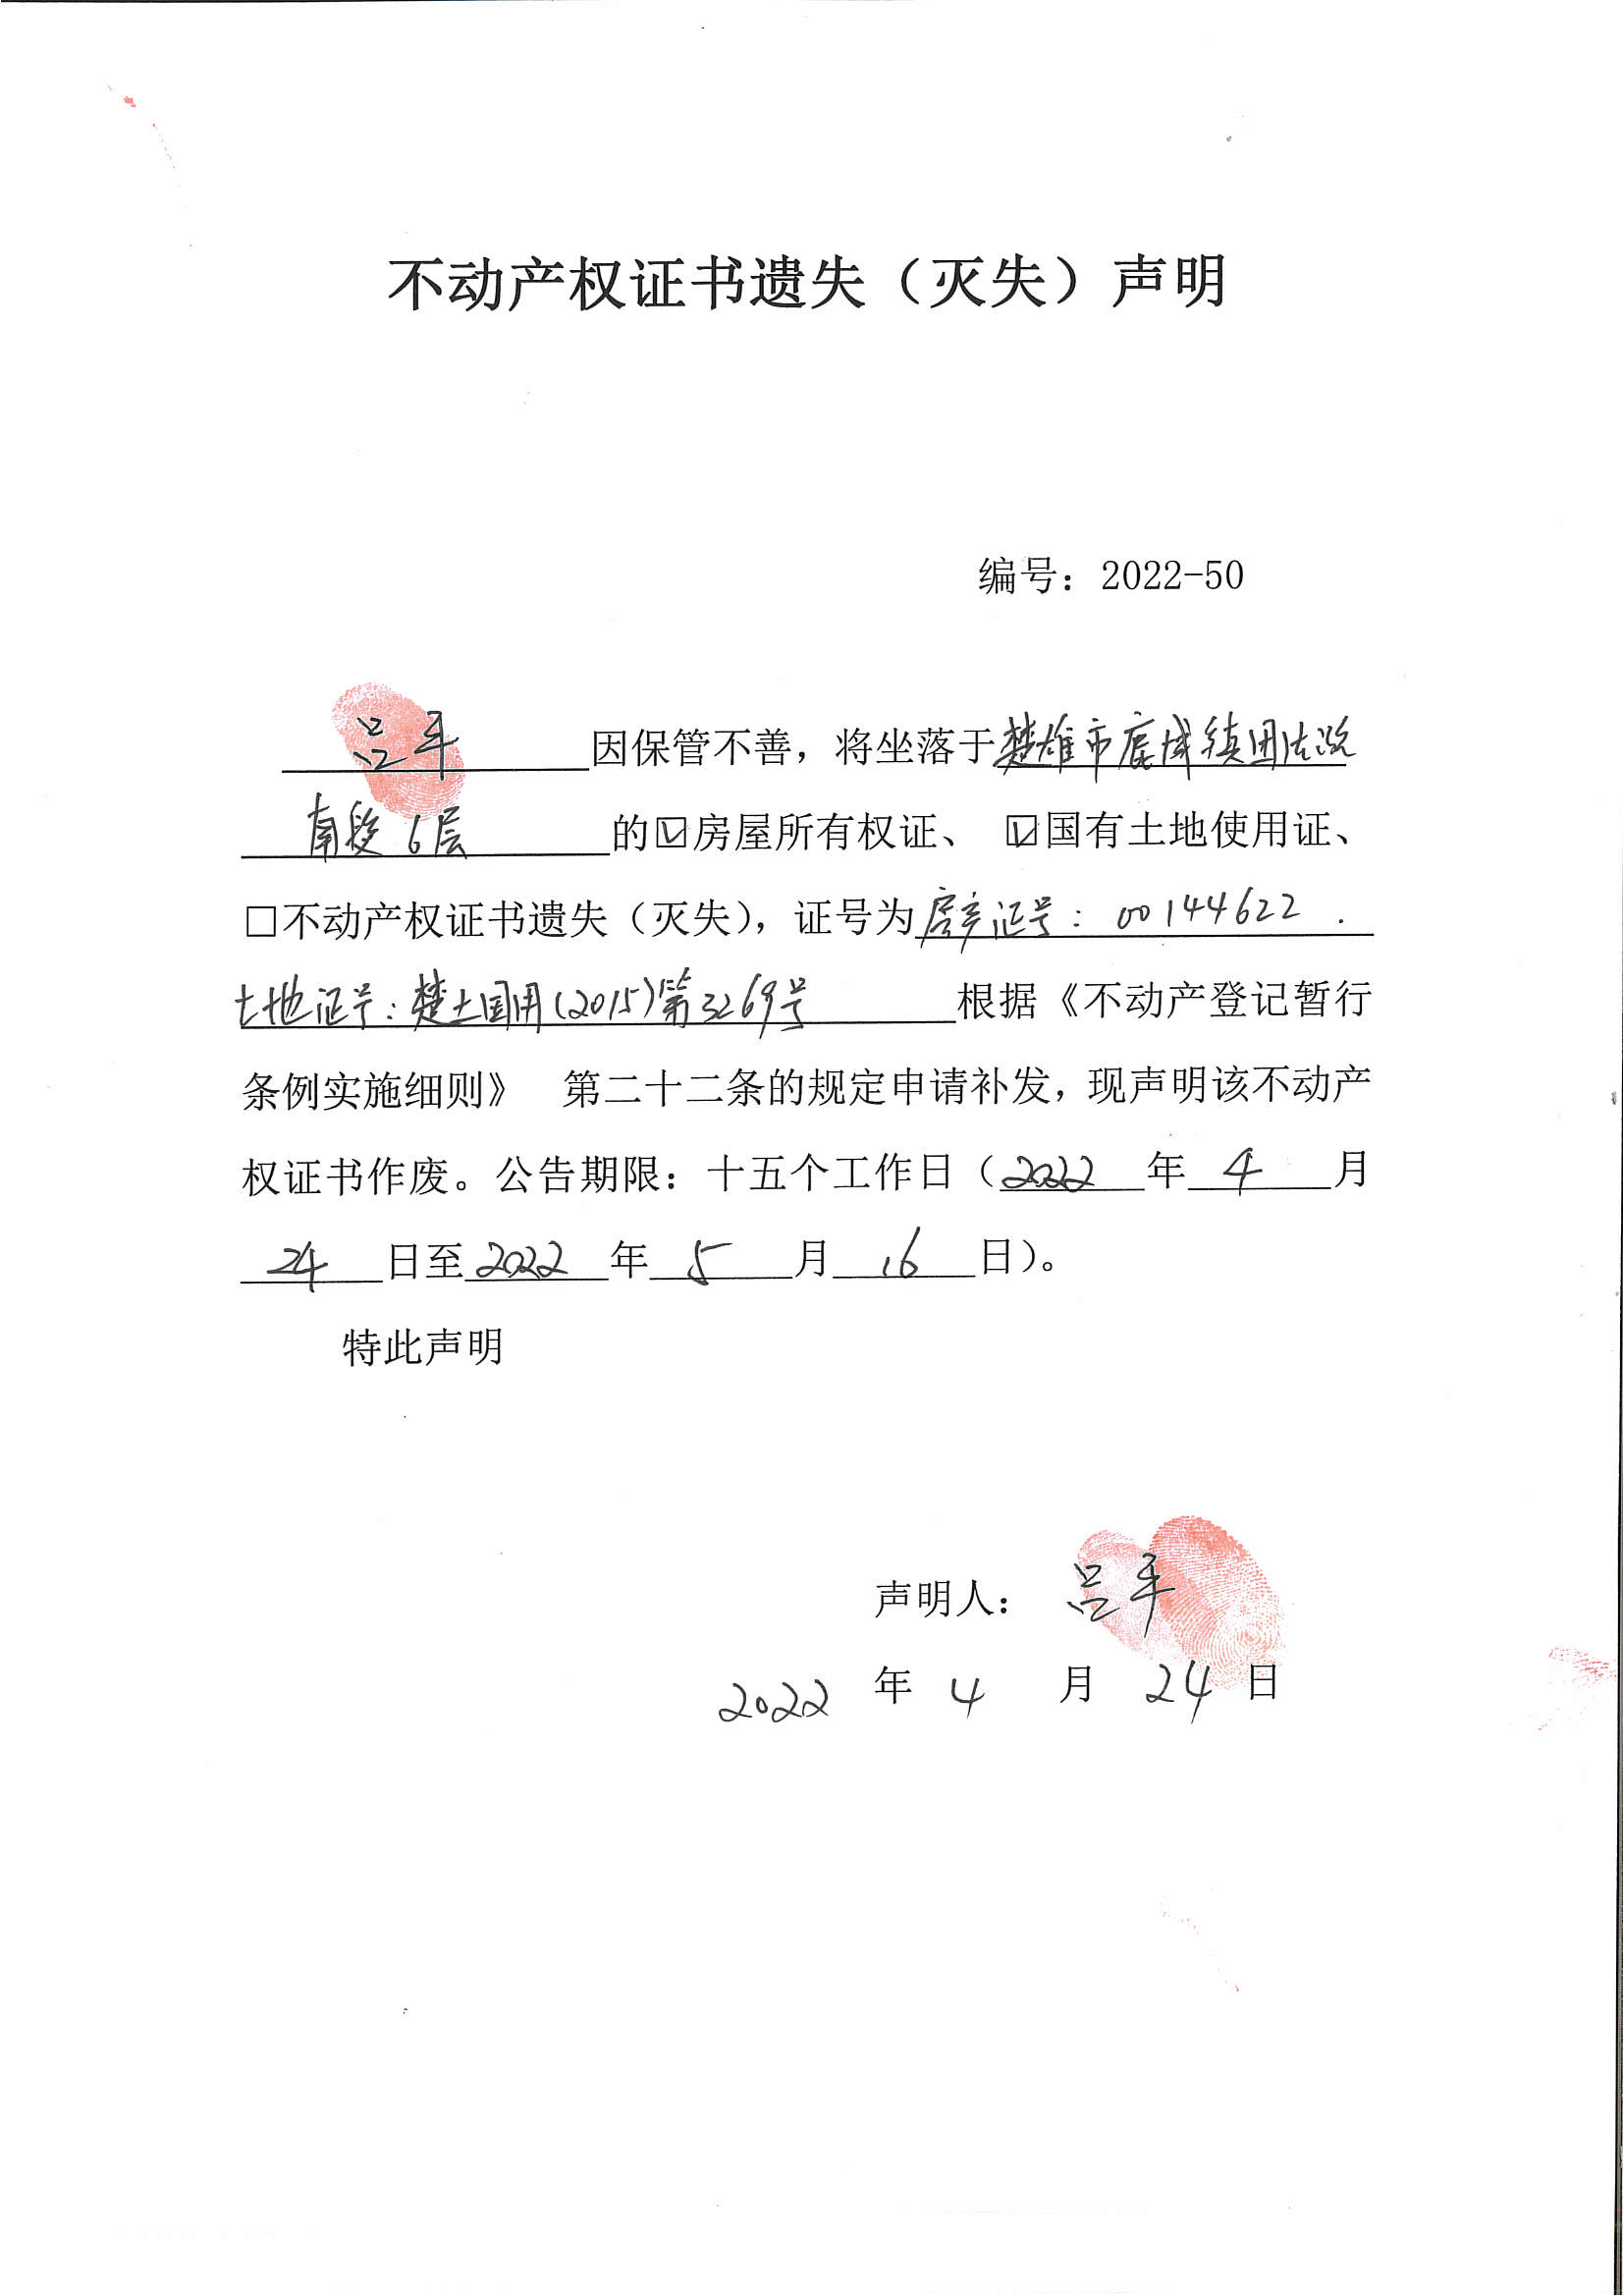 不动产权证书遗失（灭失）声明
编号：2022-50
吕平因保管不善，将坐落于楚雄市鹿城镇团法院
南段6层的☑房屋所有权证、 ☑国有土地使用证、
□不动产权证书遗失（灭失），证号为房产证号：00144622．
土地证号：楚土国用（2015）第3269号根据《不动产登记暂行
条例实施细则》 第二十二条的规定申请补发，现声明该不动产
权证书作废。公告期限：十五个工作日（2022年4月
24日至2022年5月16日）。
特此声明
声明人：吕平
2022年4月24日